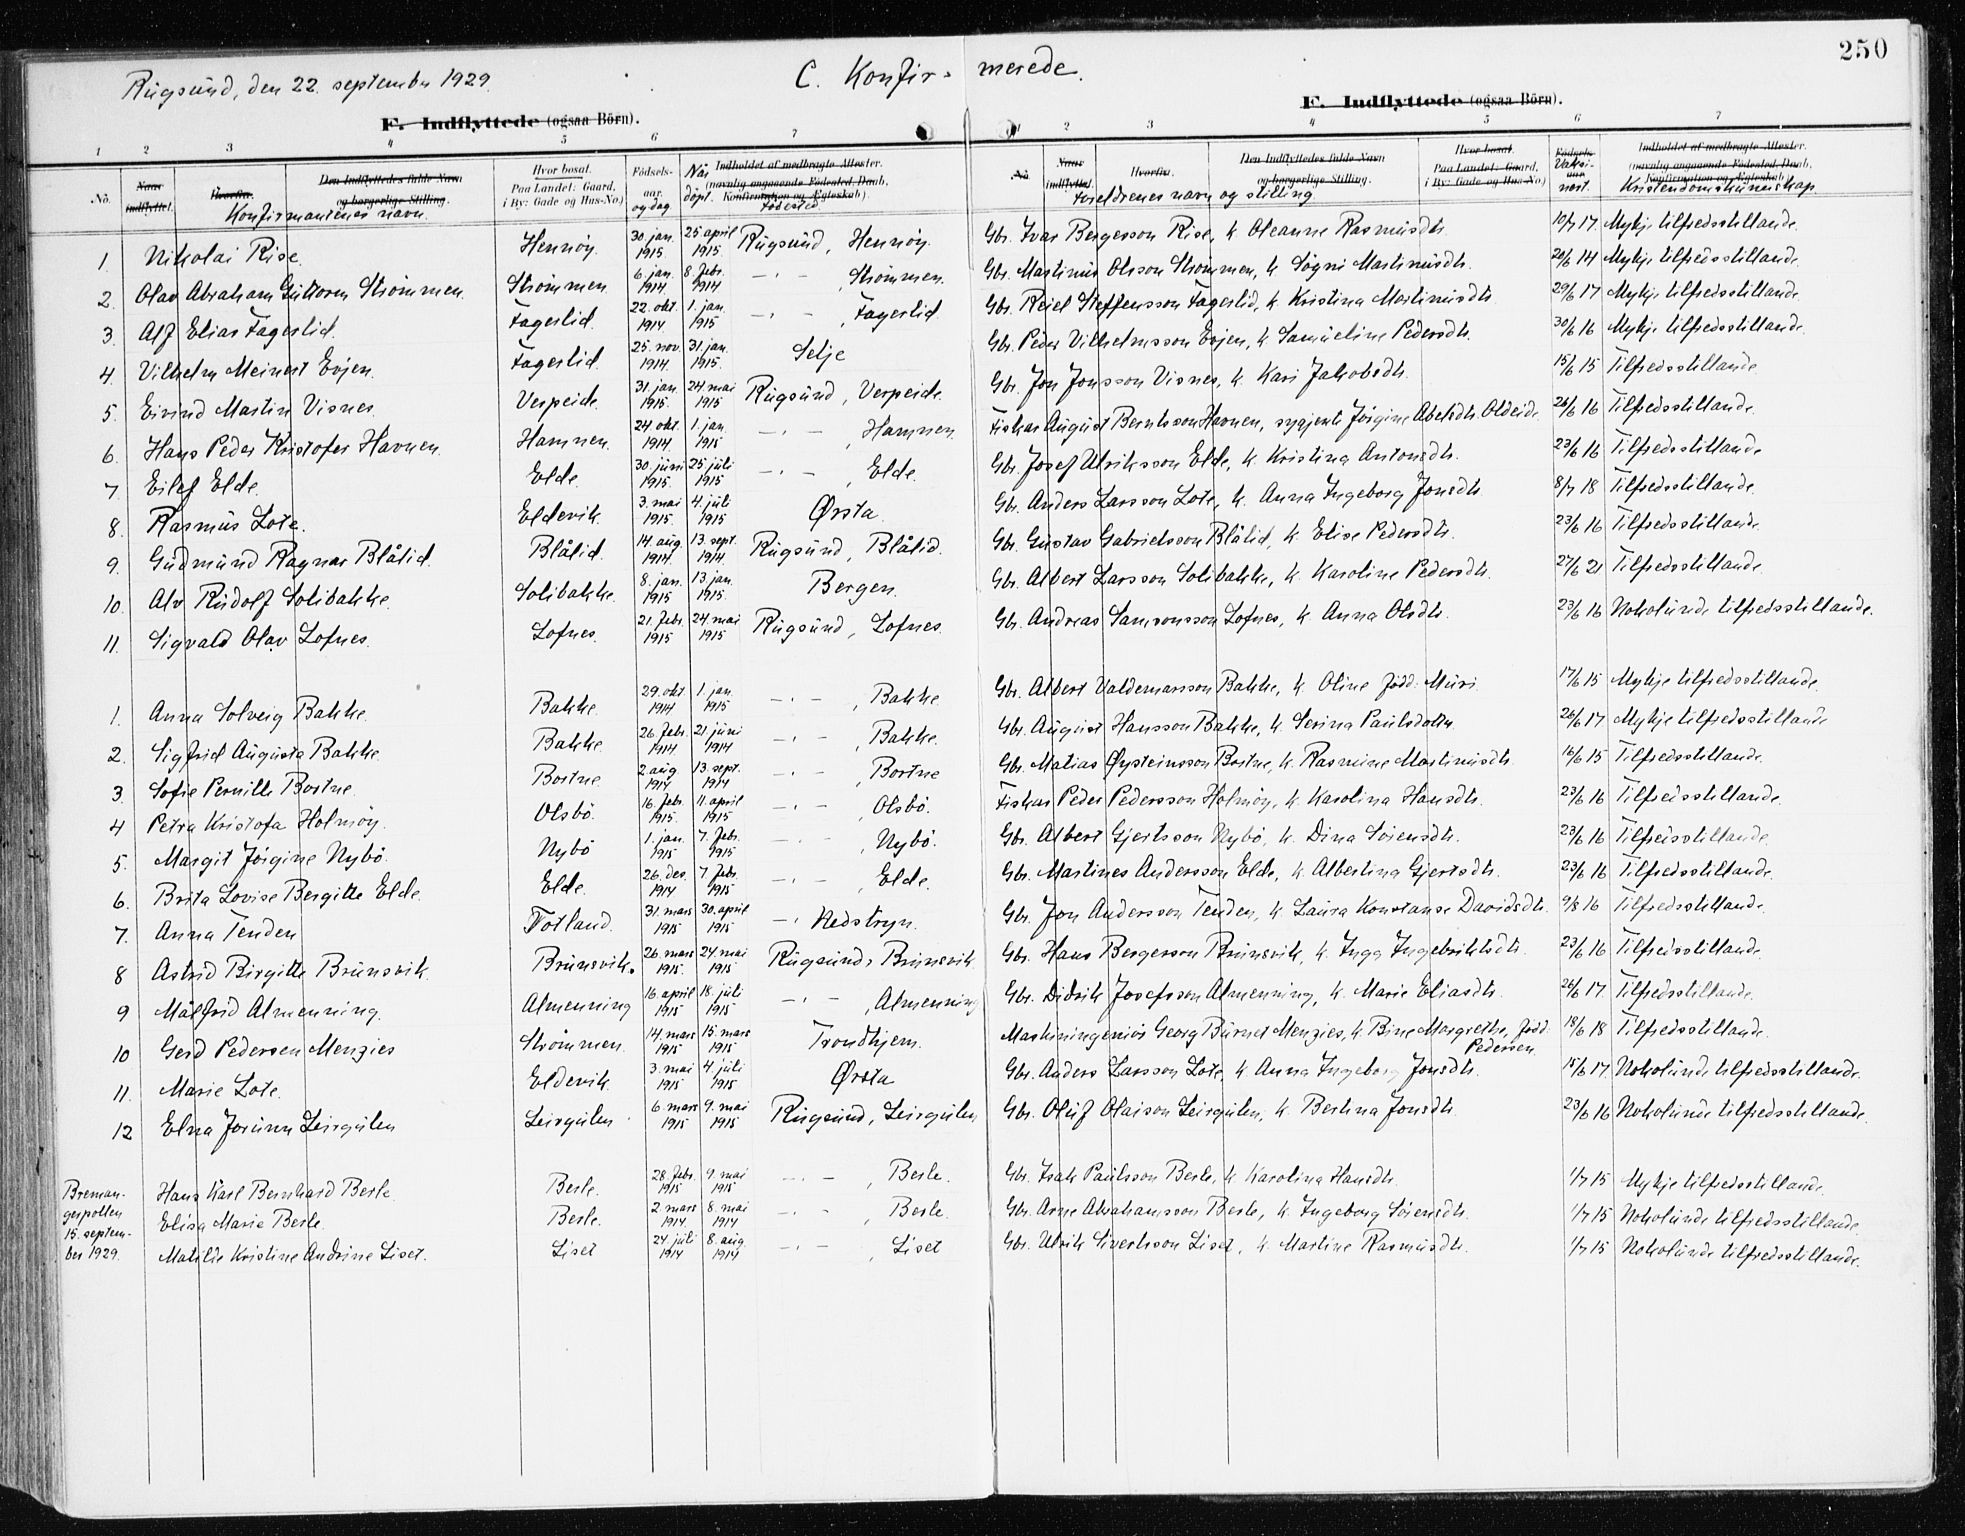 250
Rugsund, den 22. september 1929.
C. Konfir- merede.
F. Indflyttede (ogsaa Börn).
F. Indflyttede (ogsaa Börn).
1 2 3 4 5 6 7
1 2 3 4 5 6 7
No. Naar indflyttet. Hvorfra. Den Indflyttedes fulde Navn og borgerlige Stilling. Hvor bosat. Paa Landet: Gaard, i By: Gade og Hus-No.) Födsels-aar og dag Når döpt. Indholdet af medbragte Attester. (navnlig angaaende Födested, Daab, Konfirmation og Egteskab). Födested
Konfirmantenes navn.
No. Naar indflyttet. Hvorfra. Den Indflyttedes fulde Navn og borgerlige Stilling. Hvor bosat. Paa Landet: Gaard, i By: Gade og Hus-No.) Födsels- Indholdet af medbragte Attester. (navnlig angaaende Födested, Daab, Konfirmation og Egteskab).
Foreldrenes navn og stilling Kristendomskunnskap
1. Nikolai Rise. Hennöy. 30. jan. 1915 25 april 1915 Rugsund, Hennöy. Gbr. Ivar Bergesson Rise, k. Oleanne Rasmusdtr. 10/7 17 Mykje tilfredsstillande.
2. Olav Abraham Guttorm Strömmen. Strömmen 6. jan. 1914 8. febr. 1914 -"- , Strömmen. Gbr. Martinus Olsson Strömmen, k. Sögni Martinusdtr. 20/6 14 Mykje tilfredsstillande.
3. Alf Elias Fagerlid. Fagerlid. 22. okt. 1914 1. jan. 1915 -"- , Fagerlid. Gbr. Reiel Steffensson Fagerlid, k. Kristina Martinusdtr. 29/6 17 Mykje tilfredsstillande.
4. Vilhelm Meinert Evjen. Fagerlid. 25. nov. 1914. 31. jan. 1915. Selje Gbr. Peder Vilhelmsson Evjen, k. Samueline Pedersdtr. 30/6 16 Mykje tilfredsstillande.
5. Eivind Martin Visnes. Verpeide. 31. jan. 1915. 24. mai 1915 Rugsund, Verpeide. Gbr. Jon Jonsson Visnes, k. Kari Jakobsdtr. 15/6 15 Tilfredsstillande.
6. Hans Peder Kristofer Havnen. Hamnen. 24 okt. 1914. 1. jan. 1915 -"- , Hamnen. Fiskar August Berntsson Havnen, sygjente Jörgine Abelsdtr. Oldeide. 26/6 16 Tilfredsstillande.
7. Eilef Elde. Elde. 30. juni 1915. 25. juli 1915 -"- , Elde. Gbr. Josef Ulriksson Elde, k. Kristina Antonsdtr. 23/6 16 Tilfredsstillande.
8. Rasmus Lote. Eldevik. 3. mai 1915. 4. juli 1915 Ørsta. Gbr. Anders Larsson Lote, k. Anna Ingeborg Jonsdtr. 8/7 18 Tilfredsstillande.
9. Gudmund Ragnar Blålid. Blålid. 14. aug. 1914 13. sept. 1914. Rugsund, Blålid. Gbr. Gustav Gabrielsson Blålid, k. Elise Pedersdtr. 23/6 16 Tilfredsstillande.
10. Alv Rudolf Solibakke. Solibakke. 8. jan. 1915 13. jan. 1915. Bergen. Gbr. Albert Larsson Solibakke, k. Karoline Pedersdtr. 27/6 21 Tilfredsstillande.
11. Sigvald Olav Lofnes. Lofnes. 21. febr. 1915 24. mai 1915 Rugsund, Lofnes. Gbr. Andreas Samsonsson Lofnes, k. Anna Olsdtr. 23/6 16 Nokolunde tilfredsstillande.
1. Anna Solveig Bakke. Bakke. 29. okt. 1914 1. jan. 1915 -"- , Bakke. Gbr. Albert Valdemarsson Bakke, k. Oline född: Muri. 17/6 15 Mykje tilfredsstillande.
2. Sigfrid Augusta Bakke. Bakke. 26. febr. 1914 21 juni 1914 -"- , Bakke. Gbr. August Hansson Bakke, k. Serina Paulsdotter 26/6 17 Mykje tilfredsstillande
3. Sofie Pernille Bortne. Bortne 2. aug 1914 13. sept. 1914 -"- , Bortne Gbr. Matias Øysteinsson Bortne, k. Rasmine Martinusdtr. 16/6 15 Tilfredsstillande.
4 Petra Kristofa Holmöy. Olsbö. 16. febr. 1915. 11. april 1915 -"- , Olsbö. Fiskar Peder Pedersson Holmöy, k. Karolina Hansdtr. 23/6 16 Tilfredsstillande.
5. Margit Jörgine Nybö. Nybö 1. jan. 1915 7. febr. 1915 -"- , Nybö. Gbr. Albert Gjertsson Nybö, k. Dina Sörensdtr. 23/6 16 Tilfredsstillande.
6. Brita Lovise Bergitte Elde. Elde. 26. des. 1914 7 febr. 1915 -"- , Elde. Gbr. Martines Andersson Elde, k. Albertina Gjertsdtr. 23/6 16 Tilfredsstillande.
7. Anna Tenden Totland. 31. mars 1915 30. april 1915 -"- Nedstryn. Gbr. Jon Andersson Tenden, k. Laura Konstanse Davidsdtr. 9/8 16 Tilfredsstillande.
8 Astrid Birgitte Brunsvik. Brunsvik. 26. mars 1915. 24. mai 1915 Rugsund, Brunsvik. Gbr. Hans Bergesson Brunsvik, k. Inga Ingebriktsdtr. 23/6 16 Tilfredsstillande.
9 Målfrid Almenning. Almenning 16. april 1915 18. juli 1915 -"- , Almenning Gbr. Didrik Josefsson Almenning, k. Marie Eliasdtr. 26/6 17. Tilfredsstillande.
10 Gerd Pedersen Menzies Strömmen. 14. mars 1915 15. mars 1915 Trondhjem. Maskiningeniör Georg Burnet Menzies, k. Bine Margrethe, född: Pedersen. 18/6 18 Tilfredsstillande.
11. Marie Lote. Eldevik. 3. mai 1915 4. juli 1915 Ørsta Gbr. Anders Larsson Lote, k. Anna Ingeborg Jonsdtr. 15/6 17. Nokolunde tilfredsstillande.
12 Elna Jorunn Leirgulen Leirgulen 6 mars 1915 9. mai 1915 Rugsund, Leirgulen Gbr. Oluf Olaison Leirgulen, k. Bertina Jonsdtr. 23/6 16 Nokolunde tilfredsstillande.
Bremangerpollen 15. september 1929.
Hans Karl Bernhard Berle. Berle. 28. febr. 1915 9. mai 1915 -"- , Berle. Gbr. Isak Paulsson Berle, k. Karolina Hansdtr. 1/7 15 Mykje tilfredsstillande.
Elisa Marie Berle. Berle. 2. mars 1914. 8. mai 1914 -"- , Berle. Gbr. Arne Abrahamsson Berle, k. Ingeborg Sörensdtr. 1/7 15 Nokolunde tilfredsstillande.
Matilde Kristine Andrine Liset. Liset 24. juli 1914 8. aug. 1914 -"- , Liset Gbr. Ulrik Sivertsson Liset, k. Martine Rasmusdtr. 1/7 15 Nokolunde tilfredsstillande.